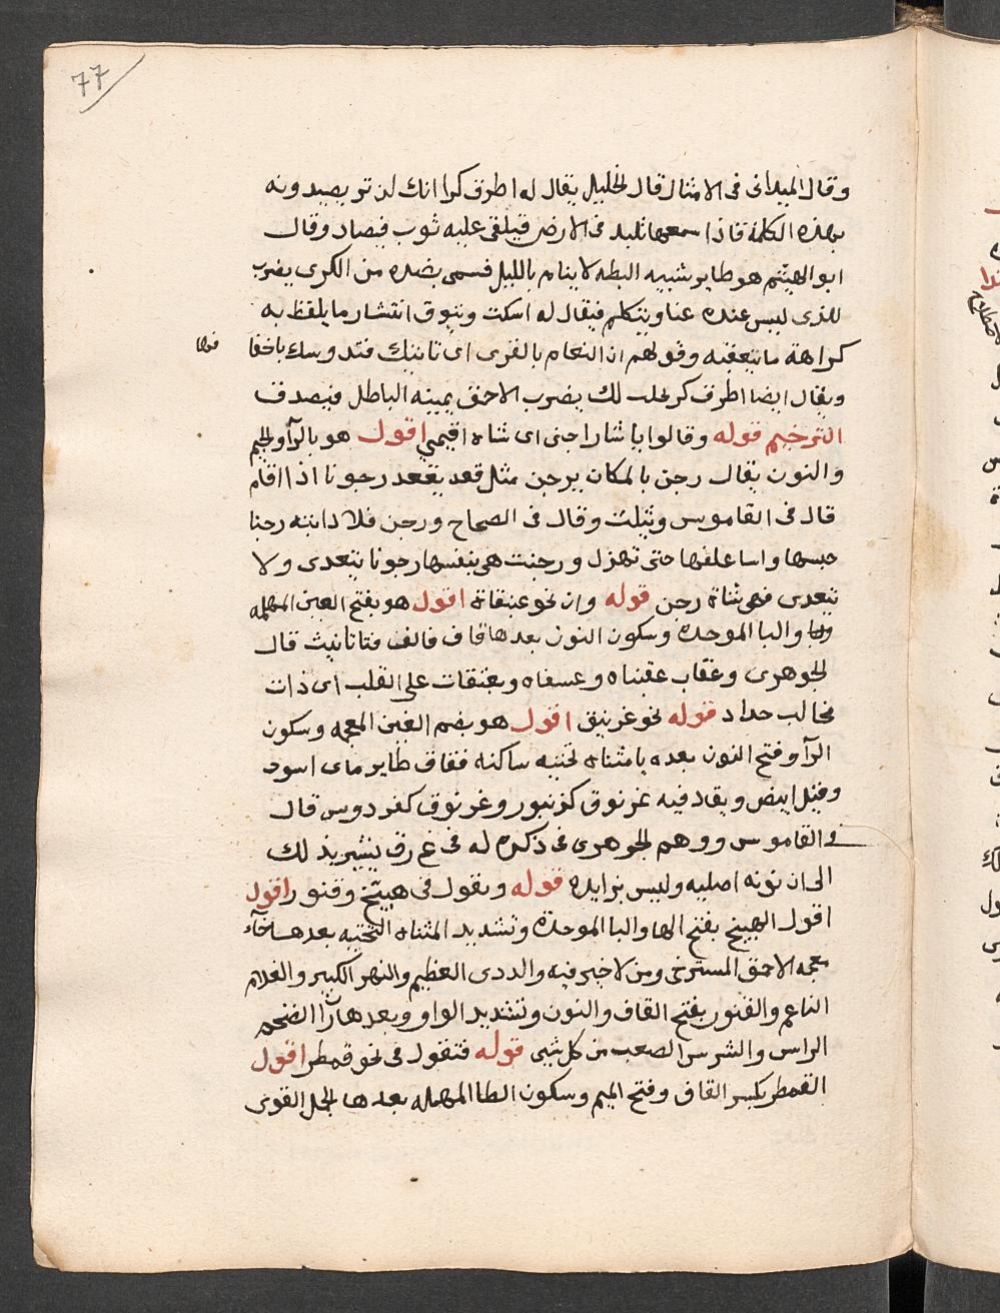 77
وقال الميدانى فى الامثال قال الخليل يقال له اطرق كرا انك لن تر يصيدونه
بهذه الكلمة فاذا سمعها تلبد فى الارض فيلقى عليه ثوب فيصاد وقال
ابو الهيثم هو طاير شبيه البطه لا ينام بالليل فسمى بضده من الكرى يضرب
للذى ليس عنده غنا ويتكلم فيقال له اسكت وتوق انتشار ما يلفظ به
كراهة ما يتعقبه وقولهم ان النعام بالقرى اى تاتيك فتدوسك باخفا
فها
ويقال ايضا اطرق كر يحلب لك يضرب الاحمق يمينه الباطل فيصدق
الترخيم قوله وقالوا يا شا ارجنى اى شاه اقيمي اقول هو بالرآ والجيم
والنون يقال رجن بالمكان يرجن مثل قعد يقعد رجونا اذا اقام
قال فى القاموس ويثلث وقال فى الصحاح ورجن فلا دابته رجنا
حبسها واسا علفها حتى تهزل ورجنت هى بنفسها رجونا يتعدى ولا
يتعدى فهى شاة رجن قوله وان نحو عبنقاة اقول هو بفتح العين المهمله
والبا الموحده وسكون النون بعدها قاف فالف فتا تانيث قال
الجوهرى وعقاب عقبناه وعبنقاه وبعنقات على القلب اى ذات
مخالب حداد قوله نحو غرنيق اقول هو بضم الغين المعجمه وسكون
الرآ وفتح النون بعده يا مثناه تحتيه ساكنه فقاف طاير ماى اسود
وقيل ابيض ويقال فيه غرنوق كزنبور وغرنوق كفردوس قال
فى القاموس ووهم الجوهرى فى ذكره له فى غ ر ق يشير بذلك
الى ان نونه اصليه وليس بزايده قوله وبقول فى هبيخ وقنور اقول
اقول الهبيخ بفتح الها والبا الموحدة وتشديد المثناه التحتيه بعدها خآء
معجمه الاحمق المسترخى ومن لا خير فيه والددى العظيم والنهر الكبير والغلام
الناعم والقنور بفتح القاف والنون وتشديد الواو وبعدها رآ الضخم
الراس والشرس الصعب من كل شيى قوله فتقول فى نحو قمطر اقول
القمطر بكسر القاف وفتح الميم وسكون الطا المهمله بعدها الجمل القوى